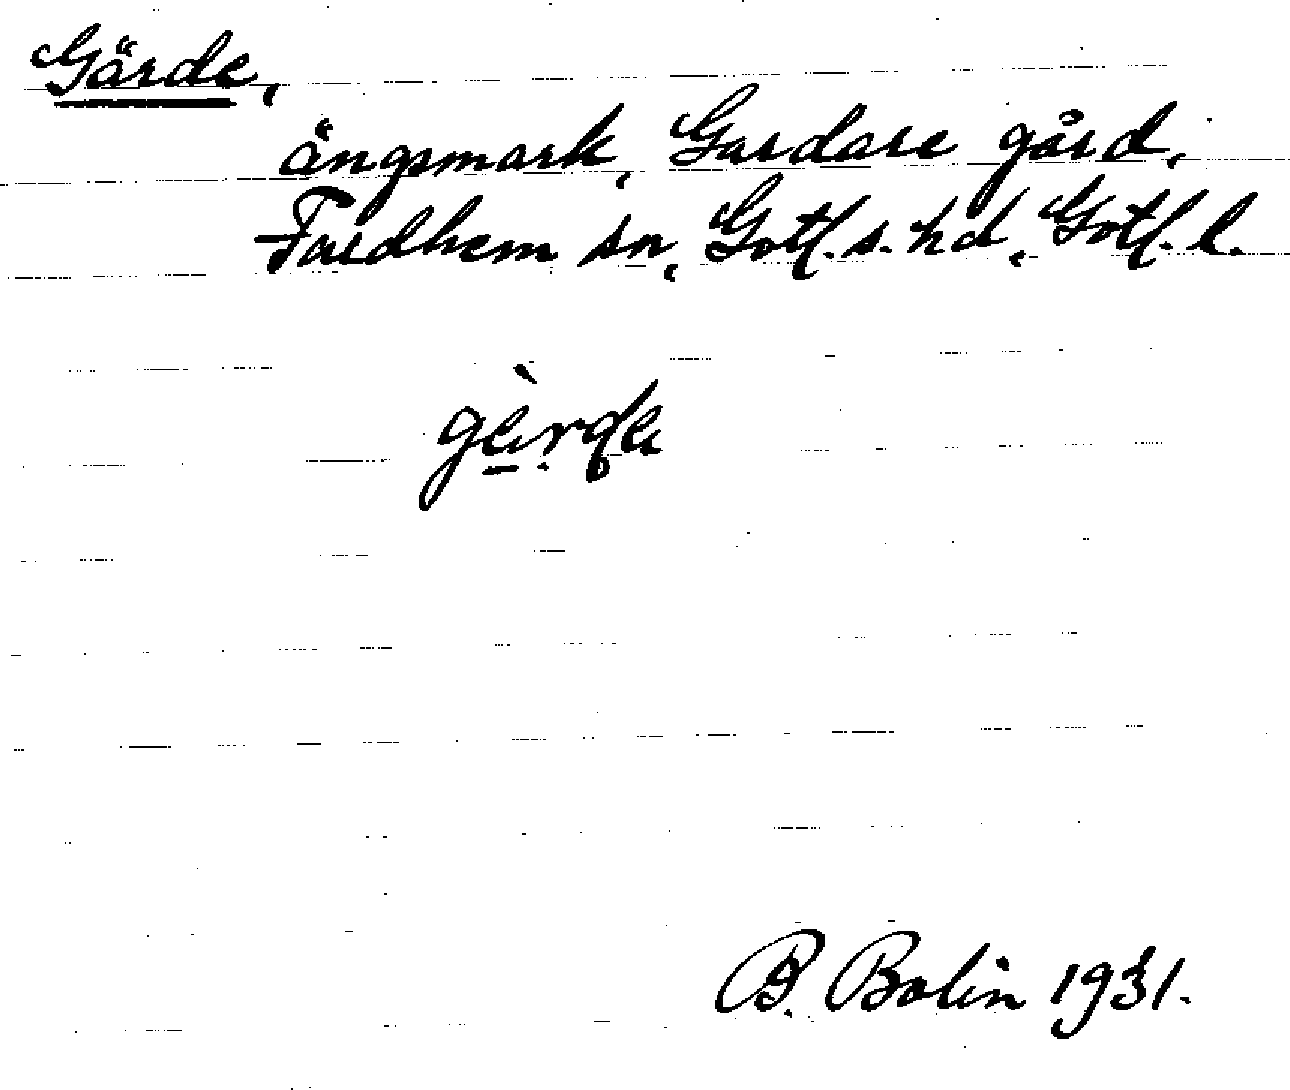 Gärde,
ängsmark, Gardare gård,
Fardhem sn, Gotl. s. hd, Gotl. l.
B. Bolin 1931.